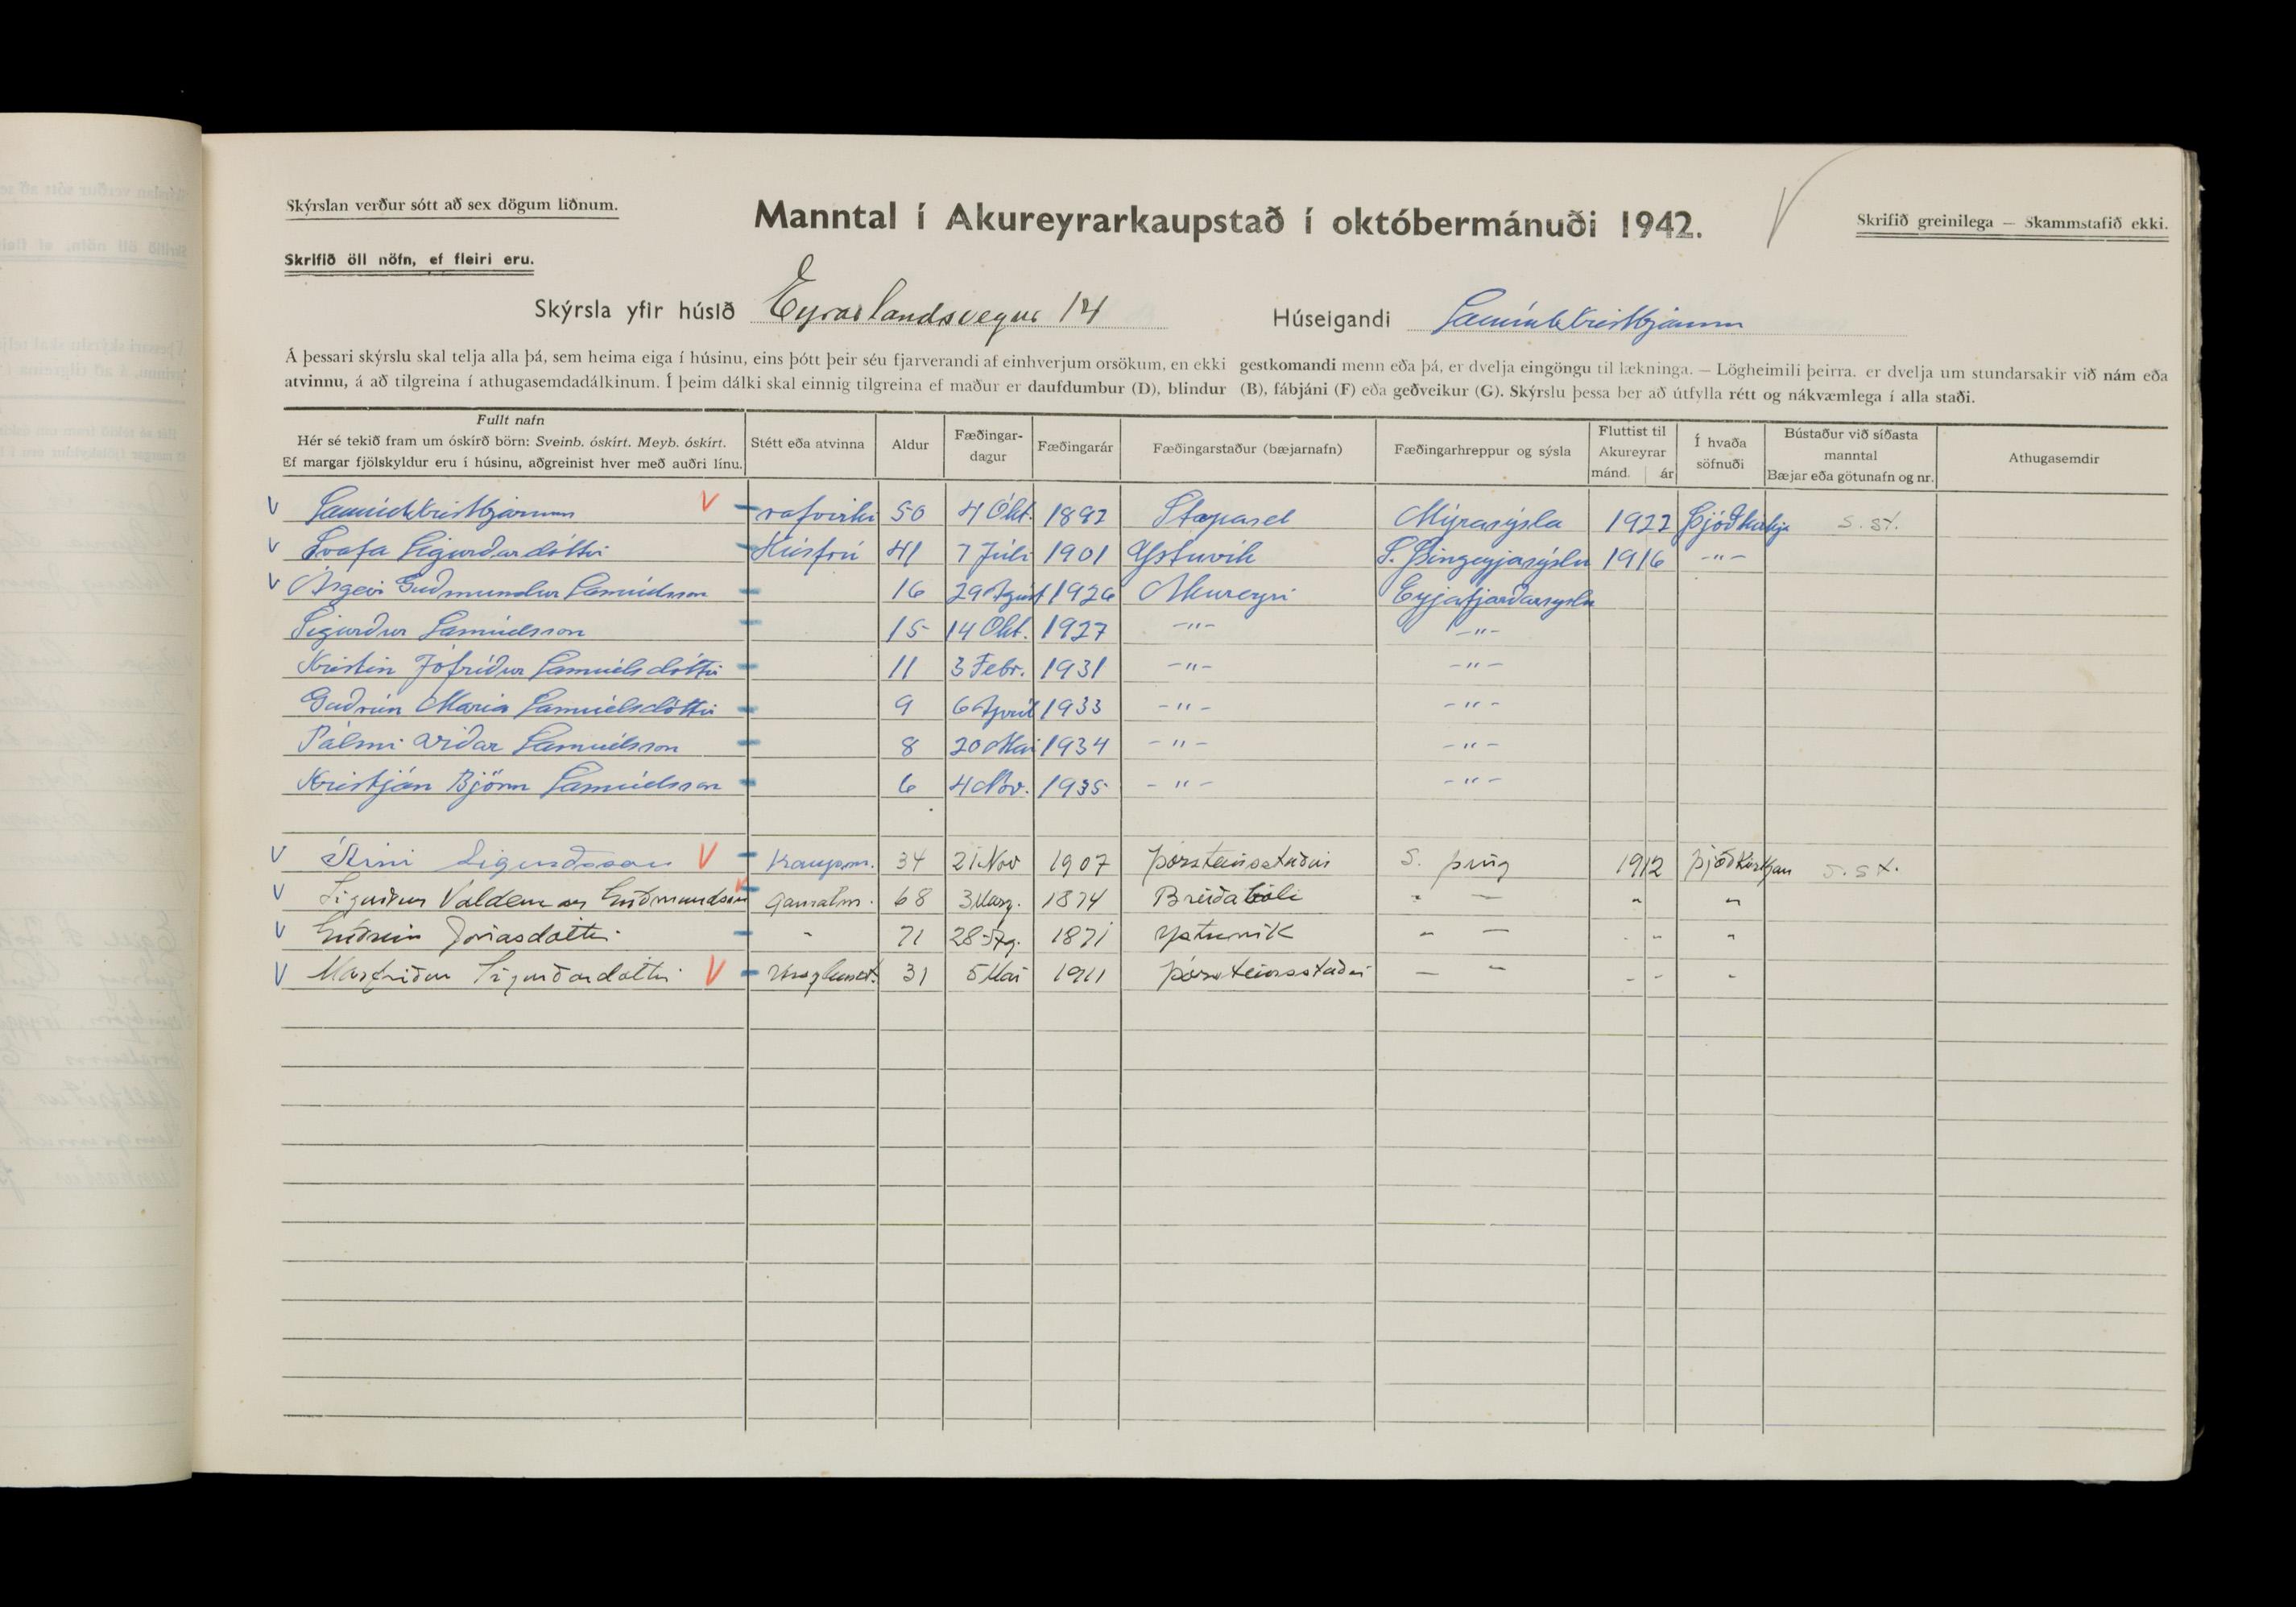 Skýrslan verður sótt að sex dögum liðnum.
Manntal í Akureyrarkaupstað í októbermánuði 1942.
Skrifið greinilega — Skammstafið ekki.
Skrifið öll nöfn, ef fleiri eru.
Skýrsla yfir húsið Eyrarlandsvegur 14 Húseigandi Samúel Kristbjarnar
Á þessari skýrslu skal telja alla þá, sem heima eiga í húsinu, eins þótt þeir séu fjarverandi af einhverjum orsökum, en ekki gestkomandi menn eða þá, er dvelja eingöngu til lækninga. — Lögheimili þeirra. er dvelja um stundarsakir við nám eða
atvinnu, á að tilgreina í athugasemdadálkinum. Í þeim dálki skal einnig tilgreina ef maður er daufdumbur (D), blindur (B), fábjáni (F) eða geðveikur (G). Skýrslu þessa ber að útfylla rétt og nákvæmlega í alla staði.
Fullt nafn
Hér sé tekið fram um óskírð börn: Sveinb. óskírt. Meyb. óskírt.
Ef margar fjölskyldur eru í húsinu, aðgreinist hver með auðri línu.
Stétt eða atvinna
Aldur
Fæðingar-
dagur
Fæðingarár
Fæðingarstaður (bæjarnafn)
Fæðingarhreppur og sýsla
Fluttist til
Akureyrar
mánd. ár
Í hvaða
söfnuði
Bústaður við síðasta
manntal
Bæjar eða götunafn og nr.
Athugasemdir
V Samúel Kristbjarnar V rafvirki 50 4 Okt. 1892 Stapasel Mýrasýsla 1922 Þjóðkirkju s. st.
V Svafa Sigurðardóttir Húsfrú 41 7 Júlí 1901 Ystuvík S. Þingeyjasýslu 1916 -"-
V Ásgeir Guðmundur Samúelsson 16 29 Ágúst 1926 Akureyri Eyjafjarðarsýslu
Sigurður Samúelsson 15 14 Okt. 1927 -"- -"-
Kristín Jófríður Samúelsdóttir 11 3 Febr. 1931 -"- -"-
Guðrún María Samúelsdóttir 9 6 Apríl 1933 -"- -"-
Pálmi Viðar Samúelsson 8 20 Maí 1934 -"- -"-
Kristján Björn Samúelsson 6 4 Nóv. 1935 -"- -"-
V Árni Sigurðsson V Kaupm. 34 21 Nóv 1907 Þorsteinsstaðir S. Þing 1912 Þjóðkirkjan s. st.
V Sigurður Valdemar Guðmundsson Gamalm. 68 3 1874 Breiðabóli " — " "
V Guðrún Jónasdóttir " 71 28 1871 Ystuvík " — " " "
V Sigurðardóttir V 31 5 Maí 1911 Þorsteinsstaðir — " " " "